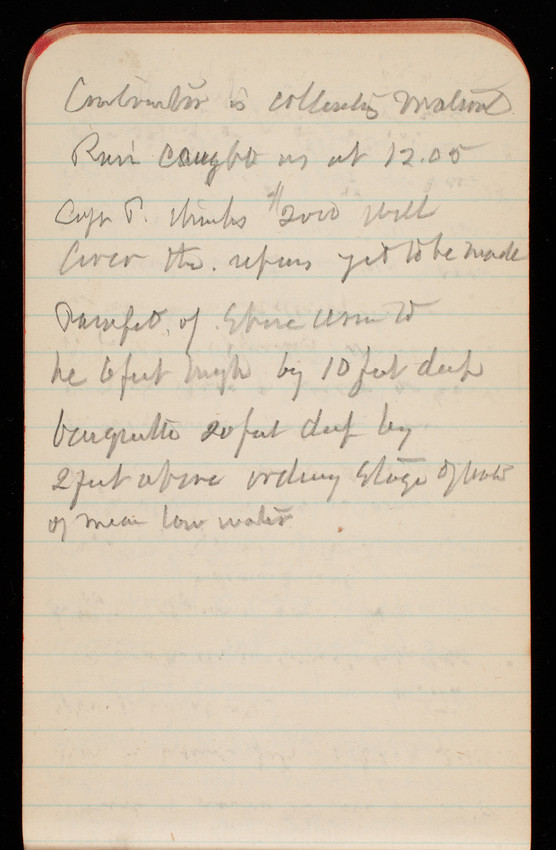 Contractor is collecting material
Rain caught us at 12.05
Capt P. thinks $2000 will
Cover the. repairs yet to be made
Parapet, of
be 6 feet high by 10 feet deep
banquette 20 feet deep by
2 feet above ordiny Stage of
of mean low water